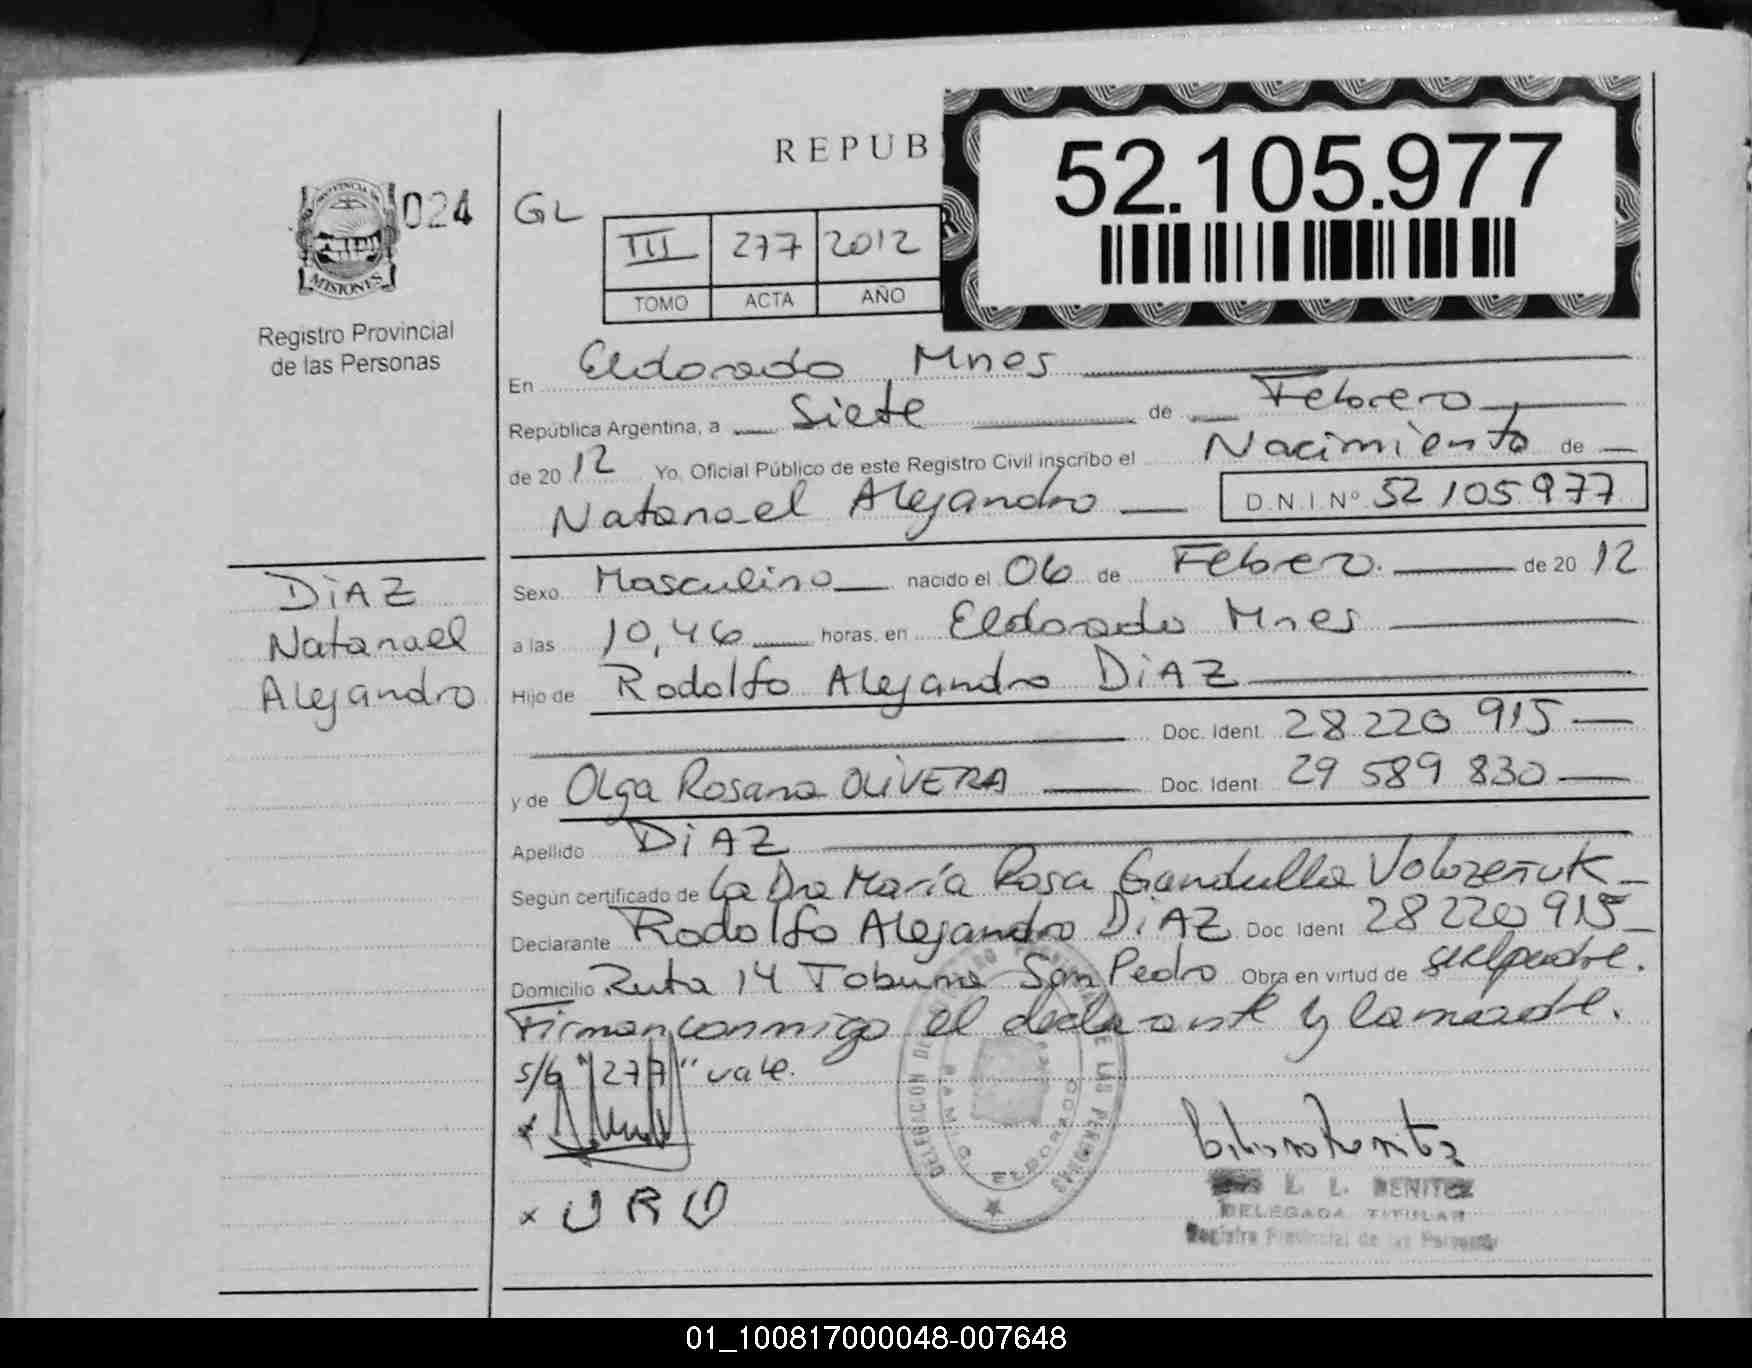 REPUB
52.105.977
024
GL
III 277 2012
TOMO ACTA AÑO
MISIONES
Registro Provincial
de las Personas
En Eldorado, Mnes
República Argentina, a Siete de Febrero
de 2012 Yo, Oficial Público de este Registro Civil inscribo el Nacimiento de
Natanael Alejandro D.N.I. Nº 52 105 977
DiAZ
Natanael
Alejandro
Sexo Masculino nacido el 06 de Febrero. de 2012
a las 10,46 horas, en Eldorado Mnes
Hijo de Rodolfo Alejandro DiAZ
Doc. Ident. 28 220 915
y de Olga Rosana OLiVERA Doc. Ident. 29 589 830
Apellido DiAZ
Según certificado de la Dra María Rosa Gandulla
Declarante Rodolfo Alejandro DiAZ Doc. Ident 28 220 915
Domicilio Ruta 14 Tobuna San Pedro Obra en virtud de
Firman conmigo el declarante y la madre.
s/b "277" vale.
x
x O R O
DELEGACION DE LAS PERSONAS
ELDORADO
L. L. BENITEZ
DELEGADA TITULAR
Registro Provincial de las Personas
01_100817000048-007648